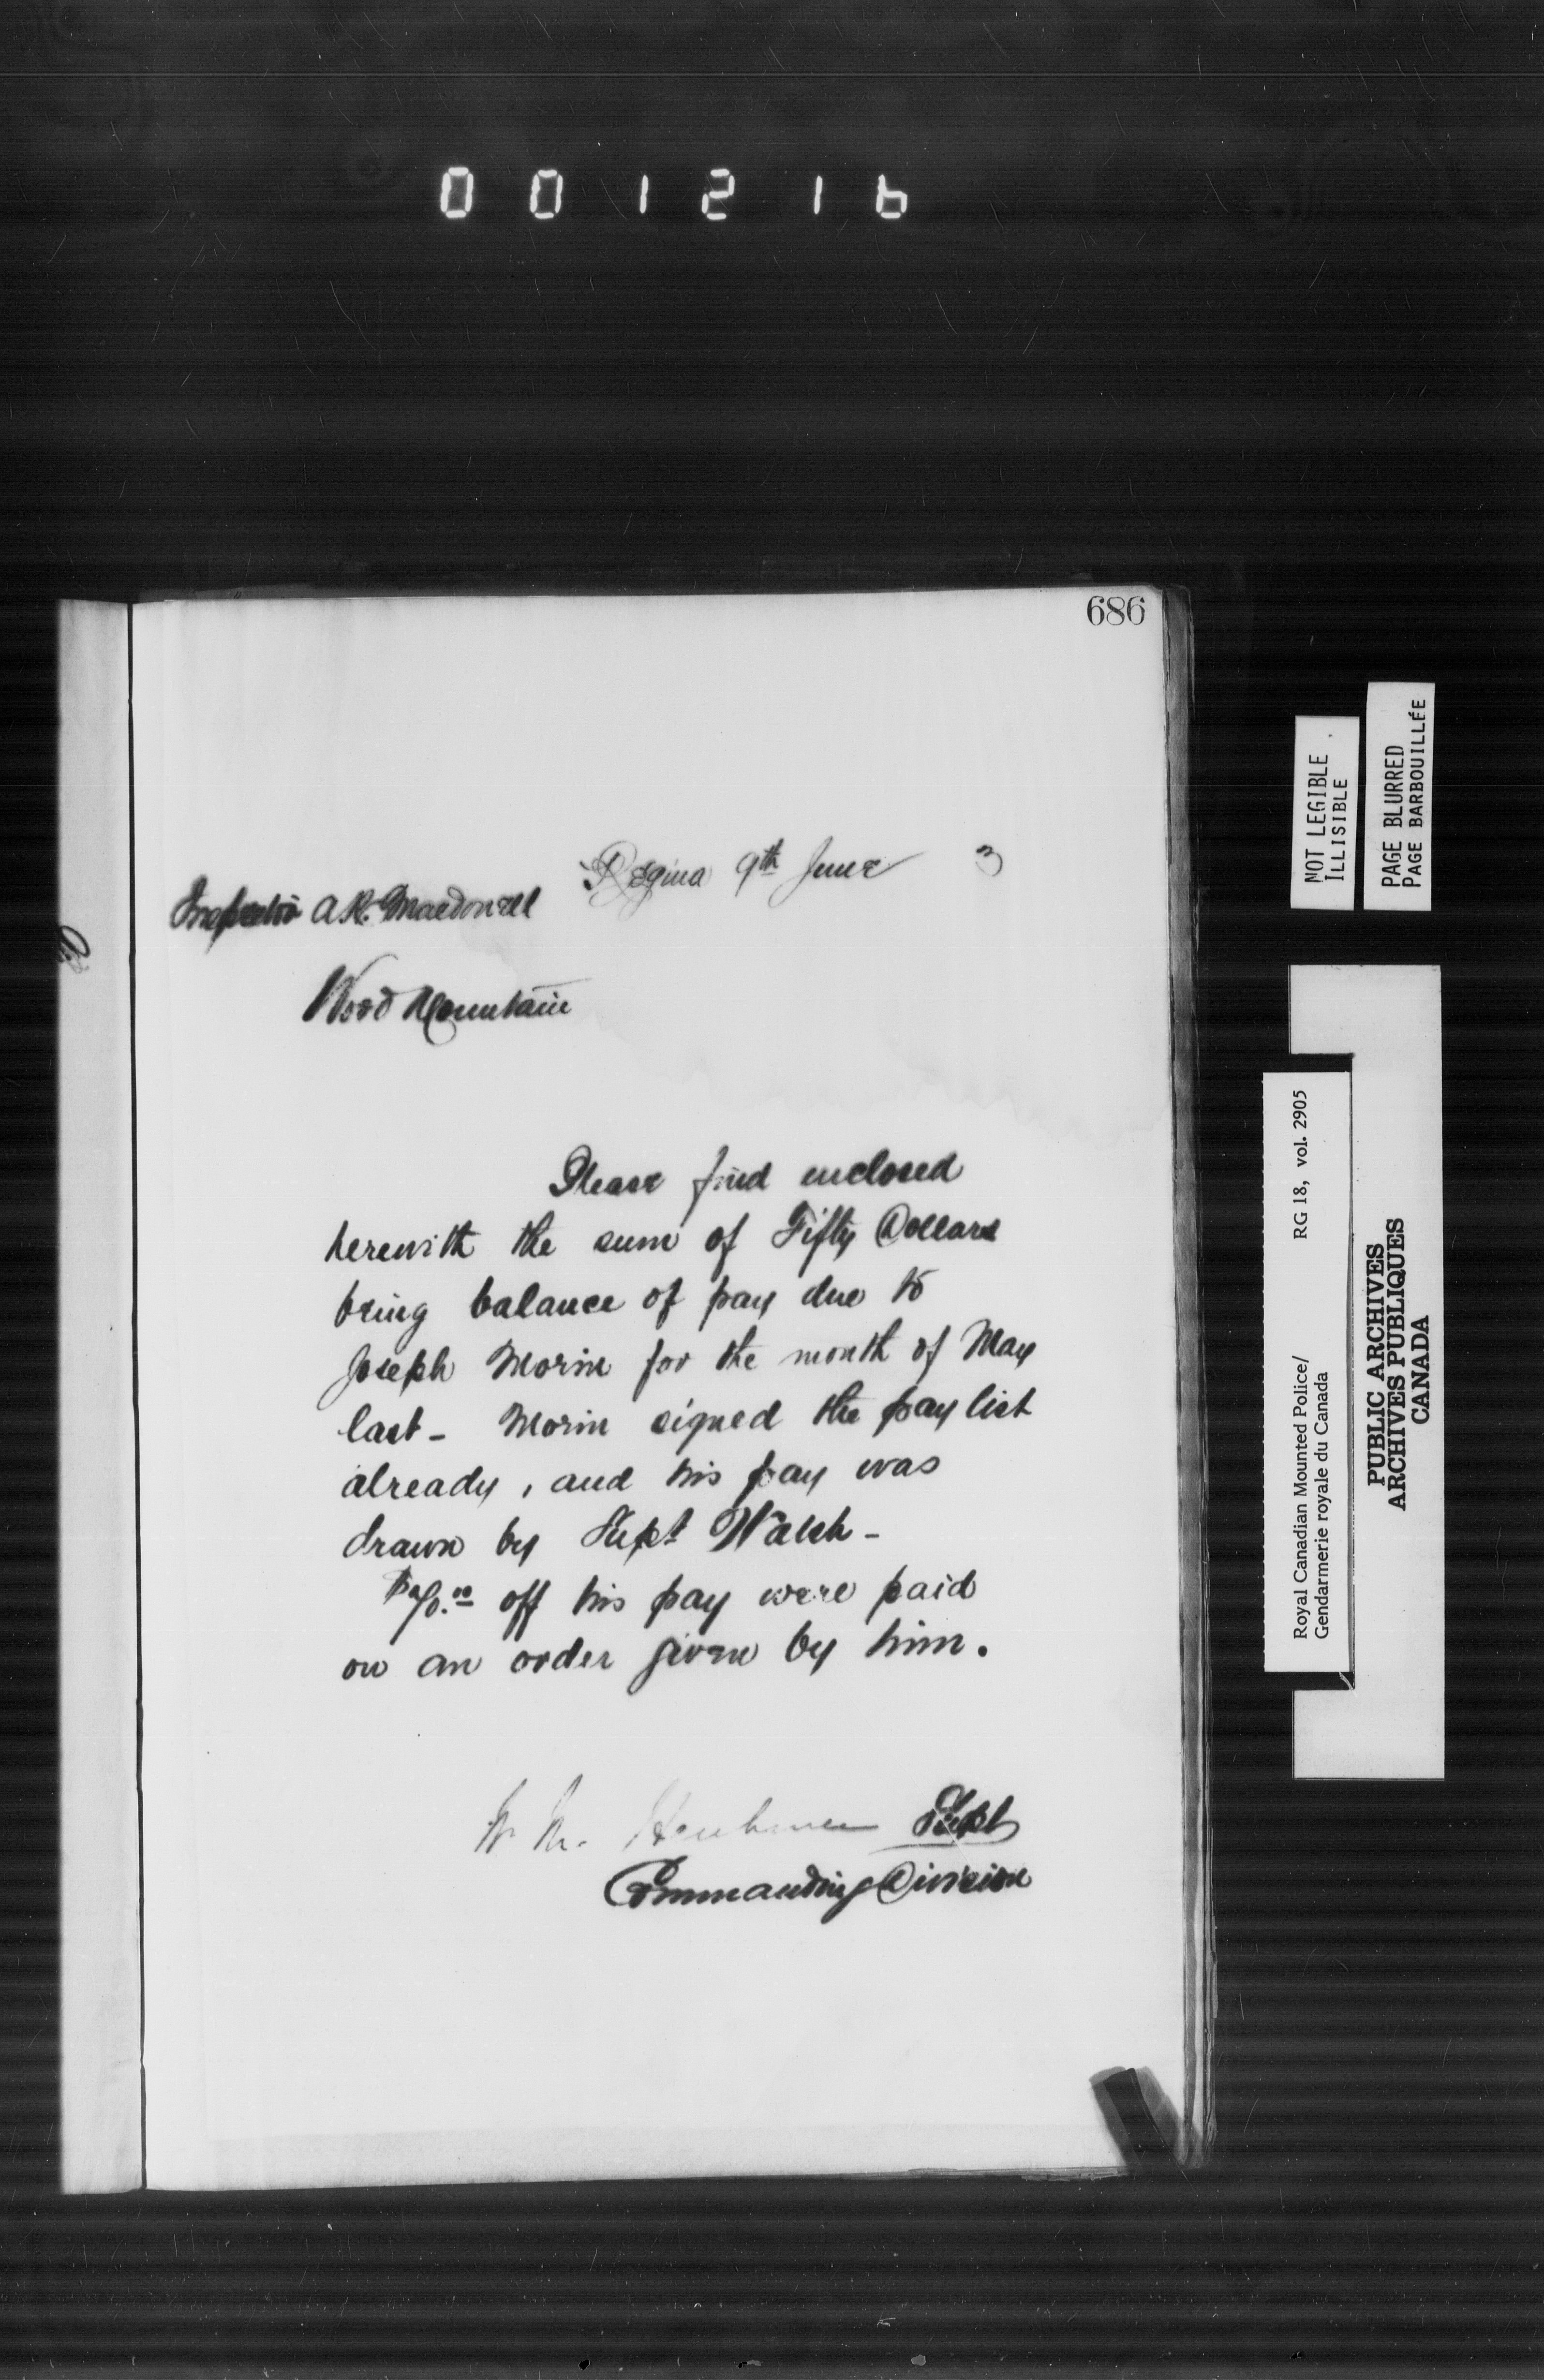 001216
686
Regina 9th June 3
Inspector A.R. Macdonell
Wood Mountain
Please find enclosed
herewith the sum of Fifty Dollars
being balance of pay due to
Joseph Morin for the month of May
last - Morin signed the pay list
already, and his pay was
drawn by Supt Walsh -
off his pay were paid
on an order given by him.
Supt
Commanding Division
NOT LEGIBLE
ILLISIBLE
PAGE BLURRED
PAGE BARBOUILLÉE
Royal Canadian Mounted Police/ RG 18, vol. 2905
Gendarmerie royale du Canada
PUBLIC ARCHIVES
ARCHIVES PUBLIQUES
CANADA